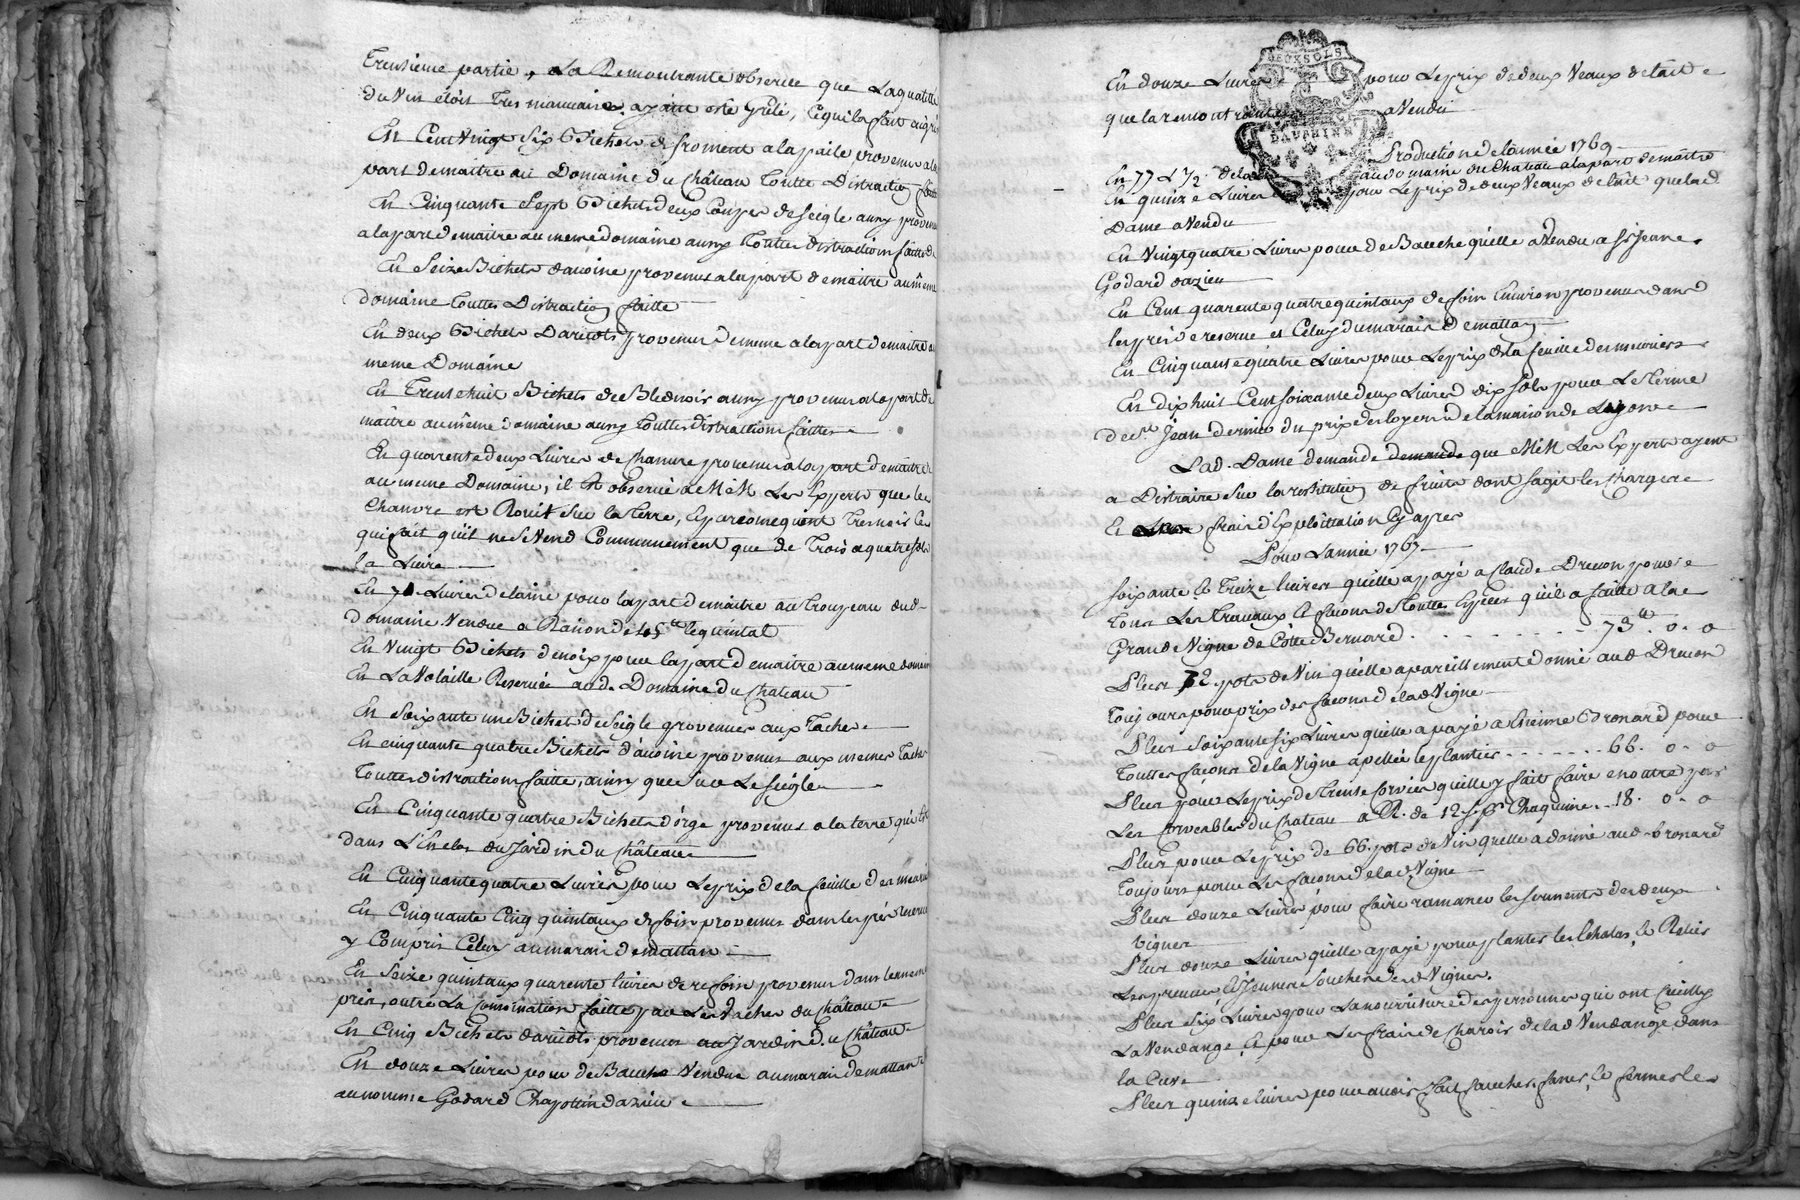 Trensieme partie, La Remontrante observe que La qualitté
du Vin étoit Tres mauvaise, ayant esté Grêlé, Ce qui la fait aigrir
En Cent Vingt Six Bichets de froment a la paile provenus a la
part de maitre au Domaine du Château Toutte Distraction faitte
En Cinquante Sept Bichets deux Coupes de seigle aussy provenus
a la part de maitre au meme domaine aussy Touttes distractions faittes
En Seize Bichets davoine provenus a la part de maitre au même
domaine Touttes Distraction faitte
En deux Bichets Daricots provenus de meme a la part de maitre au
meme Domaine
En Trente huit Bichets de Bled noir aussy provenus a la part de
maitre au même domaine aussy Touttes distractions faittes
En quarente deux Livres de Chanvre provenus a la part de maitre
au meme Domaine, il est observé a M M Les Experts que le
Chanvre est Rouit sur la Terre, Et par consequent Tres noir Ce
qui fait qu'il ne se Vend Communement que de Trois a quatre sols
la Livre
En Livres de laine pour la part de maitre au Trouppeau dud.
domaine Vendue a Raison de le quintal
En Vingt Bichets de noix pour la part de maitre au meme domaine
En La Volaille Reservée aud. Domaine du Chateau
En Soixante un Bichets de seigle provenus aux Taches
En cinquante quatre Bichets d'avoine provenus aux memes Taches
Touttes distractions faitte, ainsy que sur Le seigle
En Cinquante quatre Bichets d'orge provenus a la terre qui est
dans L'Enclos du Jardin du Château
En Cinquante quatre Livres pour Le prix de la feuille des
En Cinquante Cinq quintaux de foin provenus dans les prés reservé
y Compris Celuy au marai de mattan
En Seize quintaux quarente livres de refoin provenus dans lesmemes
prés, outre La Consomation faitte par Les Vaches du Château
En Cinq Bichets daricots provenus au Jardin du Château
En douze Livres pour de Bauche Vendue au marai de mattan
au nomme Godard Chapottin dazieu
En douze Livres pour Le prix de deux Veaux de lait
que la remontrante a Vendu
DEUX SOLS
DAUPHINE
Production de l'année 1769
En 77 & 1/2 au domaine du Chateau a la part de maitre
En quinze Livres pour Le prix de deux Veaux de lait que lad.
Dame a Vendu
En Vingt quatre Livres pour de Bauche qu'elle a Vendu a Sr Jeanne
Godard dazieu
En Cent quarente quatre quintaux de foin Environ provenus dans
les prés de reserve et Celuy du marais de mattan
En Cinquante quatre Livres pour Le prix de la feuille des muriers
En dix huit Cent soixante deux Livres dix sols pour Le Terme
de St. Jean dernier du prix des loyers de la maison de Layonne
Lad. Dame demande demande que M M Les Experts ayent
a Distraire sur la restitution de fruits dont s'agit les charges
Et frais d'Exploittation Cy apres
Pour L'année 1767
soixante & Treize livres qu'elle a payé a Claude Drevon pour
Tous Les Travaux & façons de Touttes Especes qu'il a faitte a la
Grande Vigne de Côtte Bernard . . . . . . . 73lt. 0. 0
Plus 72 pots de Vin qu'elle a pareillement donné aud. Drevon
Toujours pour prix des façons de lad Vigne
Plus Soixante six Livres qu'elle a payé a Etienne Bronard pour
Touttes façons de la Vigne apellée les plantées . . . . . . . 66. 0. 0
Plus pour Le prix de Trente Corvées qu'elle y fait faire en outre par
Les Corveables du Chateau a R. de 12 s. Chaquune . . 18. 0. 0
Plus pour Le prix de 66 pots de Vin qu'elle a donné aud. Bronard
Toujours pour Les façons de lad Vigne
Plus douze Livres pour faire ramasser les sarments des deux
Vignes
Plus douze Livres qu'elle a payé pour planter les Echalas, &
Les preuves, & Jeunes souches desd Vignes.
Plus Six Livres pour La nourriture des personnes qui ont Cueilly
La Vendange, & pour Les frais de Charois de lad Vendange dans
la Cuve
Plus quinze livres pour avoir fait faucher, faner, & fermer le